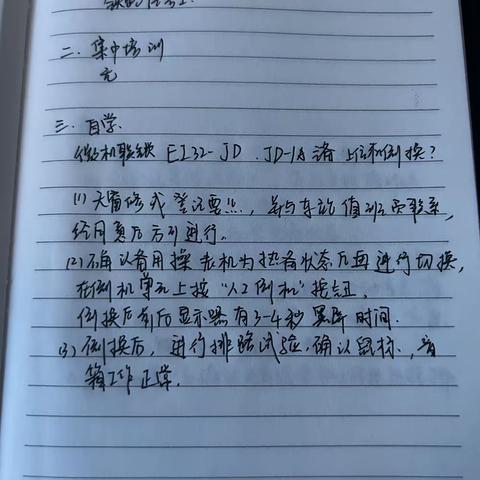 二.集中培训
无
三.自学.
微机联锁 EI32-JD.JD-1A 请上位机倒换?
(1)天窗修或登记要点,并与车站值班员联系,
经同意后方可进行.
(2)确认备用操表机为热备状态后再进行切换,
在倒机单元上按“人工倒机”按钮.
倒换后前后显示器有3-4秒黑屏时间.
(3)倒换后,进行排路试验,确认鼠标,音
箱工作正常.